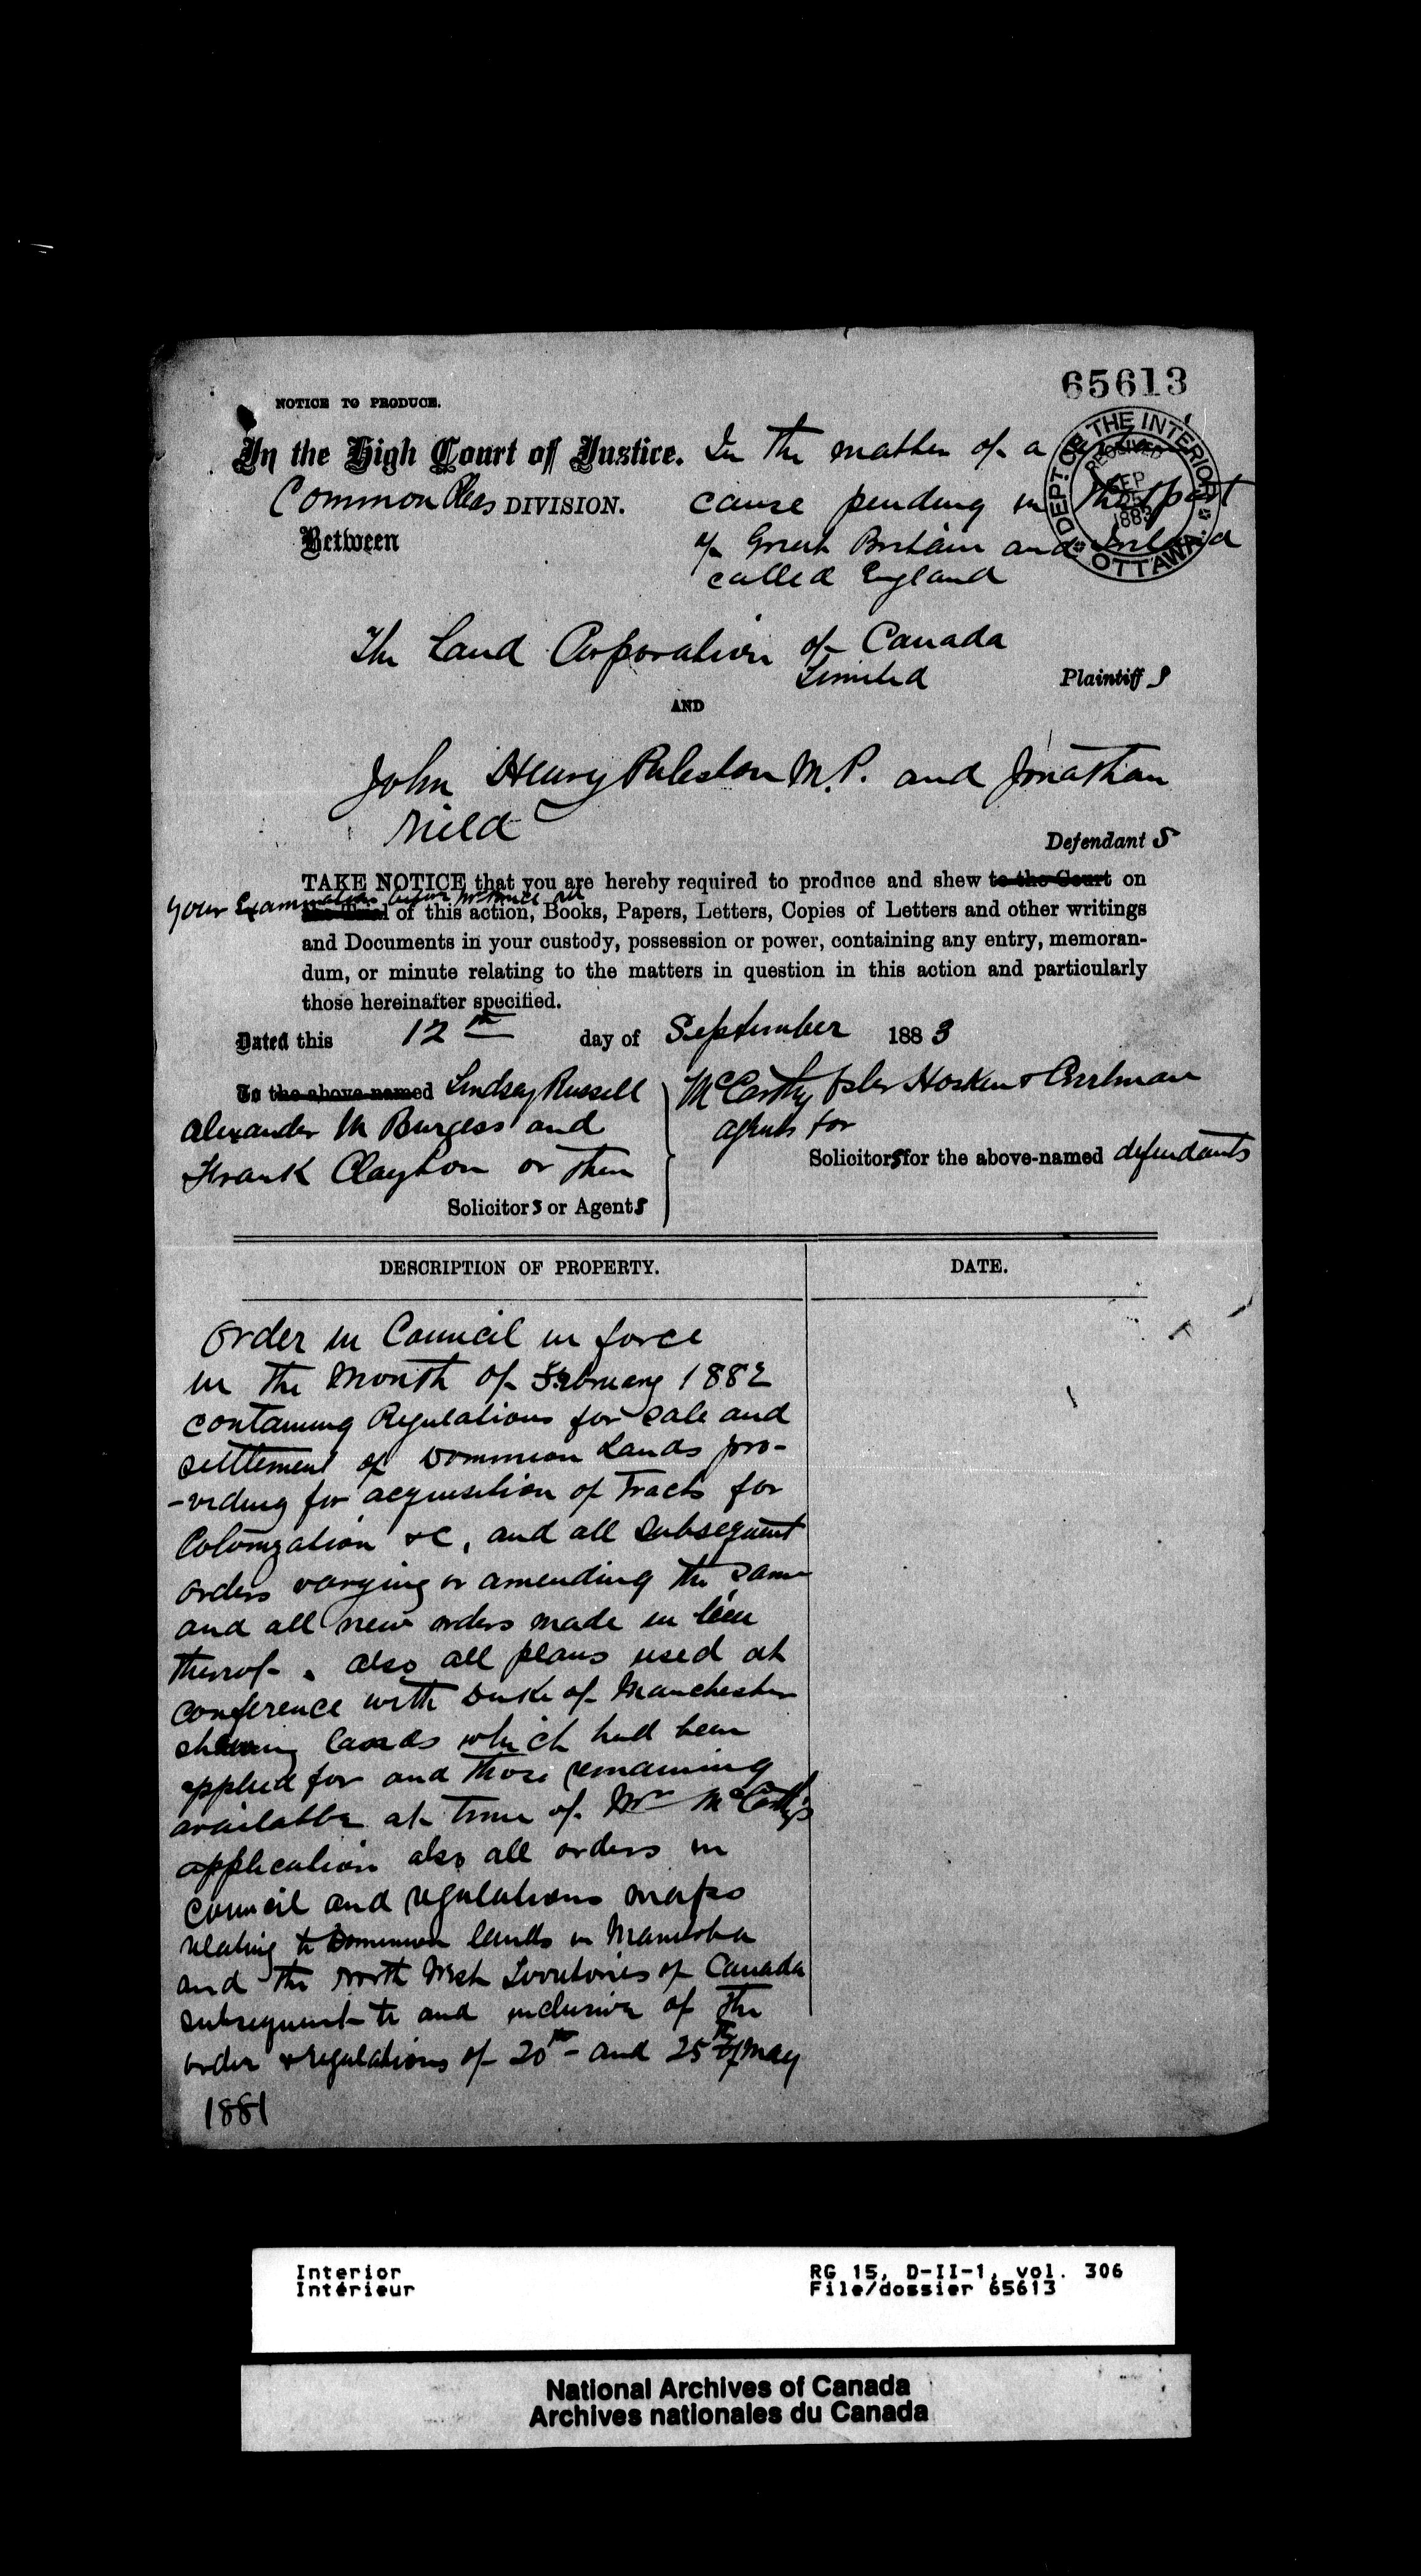 65613
NOTICE TO PRODUCE.
In the High Court of Justice. In the matter of a
Common Pleas DIVISION. cause pending in that part
Between of Great Britain and Ireland
called England
DEPT. OF THE INTERIOR
RECEIVED
SEP
25
1883
OTTAWA
The Land Corporation of Canada
Limited Plaintiff s
AND
John Henry Puleston M.P. and Jonathan
Nield
Defendant s
TAKE NOTICE that you are hereby required to produce and shew to the Court on
your Examination before all
the Trial of this action, Books, Papers, Letters, Copies of Letters and other writings
and Documents in your custody, possession or power, containing any entry, memoran-
dum, or minute relating to the matters in question in this action and particularly
those hereinafter specified.
Dated this 12th day of September 1883
To the above-named Lindsay Russell
Alexander M Burgess and
Frank Clayton or their
Solicitors or Agents
McCarthy Osler Hoskin & Creelman
agents for
Solicitors for the above-named defendants
DESCRIPTION OF PROPERTY. DATE.
Order in Council in force
in the Month of February 1882
containing Regulations for sale and
settlement of Dominion Lands pro-
-viding for acquisition of Tracts for
Colonization &c, and all subsequent
orders varying or amending the same
and all new orders made in lieu
thereof. also all plans used at
conference with Duke of Manchester
shewing lands which had been
applied for and those remaining
available at time of Mr McCarthy's
application also all orders in
council and regulations maps
relating to Dominion lands in Manitoba
and the North West Territories of Canada
subsequent to and inclusive of the
order & regulations of 20th and 25th of May
1881
Interior
Intérieur
RG 15, D-II-1, vol. 306
File/dossier 65613
National Archives of Canada
Archives nationales du Canada